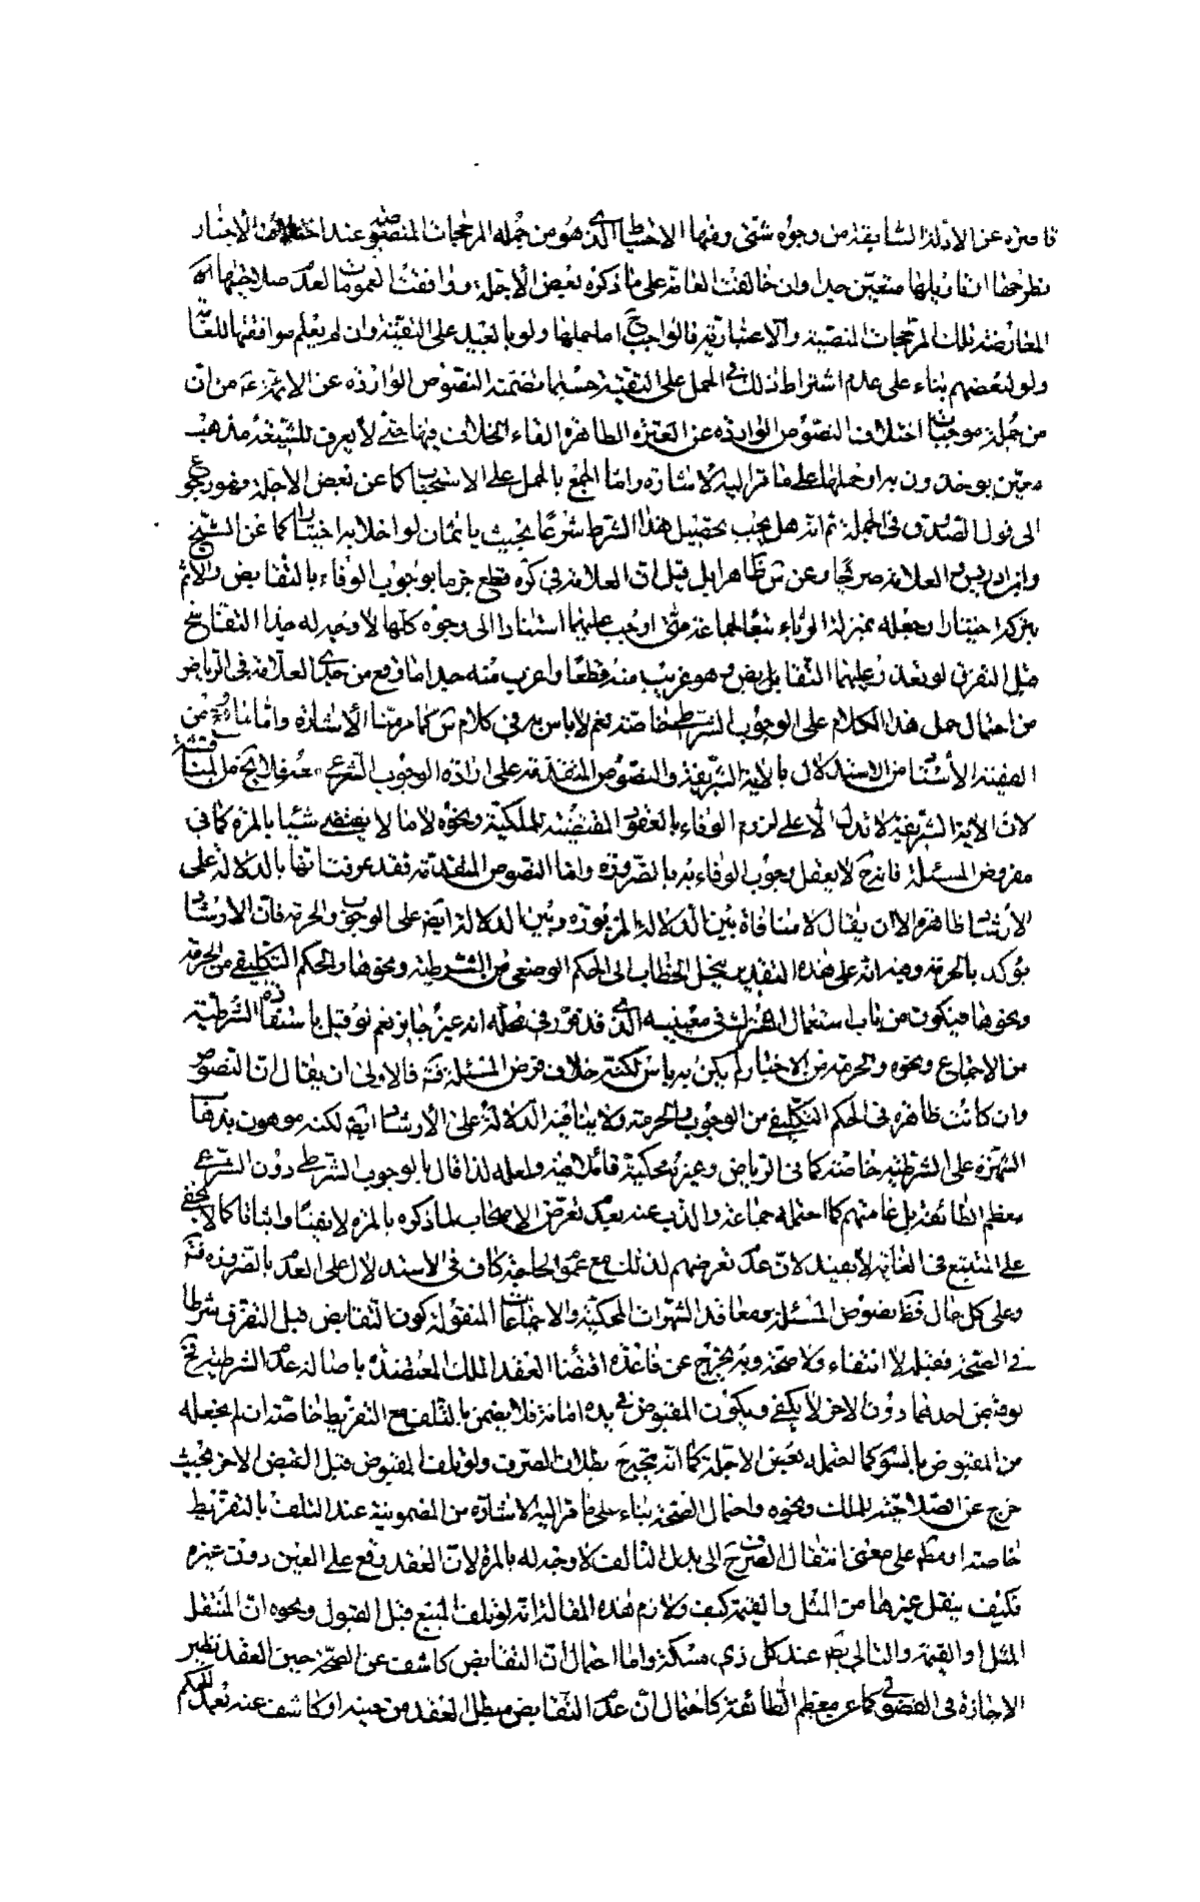 قاصرة عن الادلة السابقة من وجوه شتى ومنها الاحتياط الذى هو من جملة المرجحات المنصوصة عند اختلاف الاخبار
فطرحها او تاويلها متعين جدا وان خالفت العامة على ما ذكره بعض الاجلة ووافقت العمومات لعدم صلاحيتها
المعارضة تلك المرجحات المنصبة والاعتبارية فالواجب ح اما حملها ولو بالبعيد على التقية وان لم يعلم موافقتها للعامة
ولو لبعضهم بناء على عدم اشتراط ذلك فى الحمل على التقية حسبما تضمنته النصوص الواردة عن الائمة ع من ان
من جملة موجبات اختلاف النصوص الواردة عن العترة الطاهرة القاء الخلاف فيها حتى لا يعرف للشيعة مذهب
معين يوخذون به او حملها على ما مر اليه الاشارة واما الجمع بالحمل على الاستحباب كما عن بعض الاجلة فهو رجوع
الى قول الصدوق فى الجملة ثم انه هل يجب تحصيل هذا الشرط شرعًا بحيث ياثمان لو اخلا به اختيارا كما عن الشيخ
وابن ادريس والعلامة صريحًا وعن ظاهرا بل قيل ان العلامة فى كره قطع جزما بوجوب الوفاء بالتقابض والاثم
بتركه اختيارا وجعله بمنزلة الرباء تبعًا لجماعة متى اوجب عليهما استنادا الى وجوه كلها لا وجه له جدا التفاسخ
قبل التفرق لو تعذر عليهما التقابض وهو غريب منه قطعًا واغرب منه جدا ما وقع من جدى العلامة فى الرياض
من احتمال حمل هذا الكلام على الوجوب الشرطى خاصة نعم لا باس به فى كلام كما مر منا الاشارة واما من
الاستاد من الاستدلال بالاية الشريفة والنصوص المتقدمة على ارادة الوجوب الشرعى فلا يخ من
لان الاية الشريفة لا تدل الا على لزوم الوفاء بالعقود المقتضية للملكية ونحوه لا ما لا يقتضى شيئا بالمرة كما فى
مفروض المسئلة فانه ح لا يعقل وجوب الوفاء به بالضرورة واما النصوص المتقدمة فقد عرفت انها بالدلالة على
الارشاد ظاهرة الا ان يقال لا منافاة بين الدلالة المزبورة وبين الدلالة ايض على الوجوب والحرمة فان الارشاد
يؤكد بالحرمة وفيه انه على هذه التقدير ينحل الخطاب الى الحكم الوضعى من الشرطية ونحوها والحكم التكليفى من الحرمة
ونحوها فيكون من باب استعمال المشترك فى معنييه الذى قد تقرر فى محله انه غير جايز نعم لو قيل باستفادة الشرطية
من الاجماع ونحوه والحرمة من الاخبار لم يكن به باس لكنه خلاف فرض المسئلة فالاولى ان يقال ان النصوص
وان كانت ظاهرة فى الحكم التكليفى من الوجوب والحرمة ولا ينافيه الدلالة على الارشاد ايض لكنه موهون
الشهرة على الشرطية خاصة كما فى الرياض وغيره محكية قائلا فيه ولعله لذا قال بالوجوب الشرطى دون الشرعى
معظم الطائفة بل عامتهم كما احتمله جماعة والذب عنه بعدم تعرض الاصحاب لما ذكره بالمرة لا نفيًا واثباتا كما لا يخفى
على المتتبع فى الغاية لا يفيد لان عدم تعرضهم لذلك مع عموم الحاجة كاف فى الاستدلال على العدم بالضرورة
وعلى كل حال فظ نصوص المسئلة ومعاقد الشهرات المحكية والاجماعات المنقولة كون التقابض قبل التفرق شرطا
فى الصحة فقبله لا انتفاء ولا صحة وبه يخرج عن قاعدة اقتضاء العقد الملك المعتضدة باصالة عدم الشرطية فح
لو قبض احدهما دون الاخر لا يكفى ويكون المقبوض فى يده امانة فلا يضمن بالتلف مع التفريط خاصة ان لم نجعله
من المقبوض بالسوم كما احتمله بعض الاجلة كما انه يتجه ح بطلان الصرف ولو تلف المقبوض قبل القبض الاخر بحيث
خرج عن الصلاحية للملك ونحوه واحتمال الصحة بناء على ما مر اليه الاشارة من المضمونية عند التلف بالتفريط
خاصة او مطلقا على معنى انتقال الصرف ح الى بدل التالف لا وجه له بالمرة لان العقد وقع على العين دون غيره
فكيف ينقل غيرها من المثل والقيمة كيف ولازم هذه المقالة انه لو تلف المبيع قبل القبول ونحوه ان المنتقل
المثل او القيمة والتالى بط عند كل ذى مسكة واما احتمال ان التقابض كاشف عن الصحة حين العقد نظير
الاجازة فى الفضولى كما عن معظم الطائفة كاحتمال ان عدم التقابض مبطل لعقد من حينه او كاشف عنه بعدم الحكم